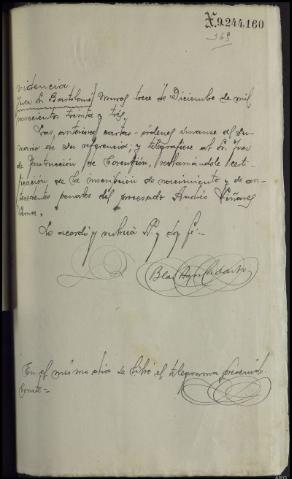 N.9.244.160
369
videncia
Juez Sr. Bartolomé Muros trece de Diciembre de mil
novecientos treinta y tres.
Las anteriores cartas-órdenes únanse al su-
mario de su referencia, y telegrafíese al Sr. Juez
de Instrucción de Corcubión, reclamándole certi-
ficación de la inscripción de nacimiento y de an-
tecedentes penales del procesado Andrés Viñores
Lema.
Lo acordó y rubrica Sª y doy fé.-
Blas
En el mismo dia se libró el telegrama prevenido